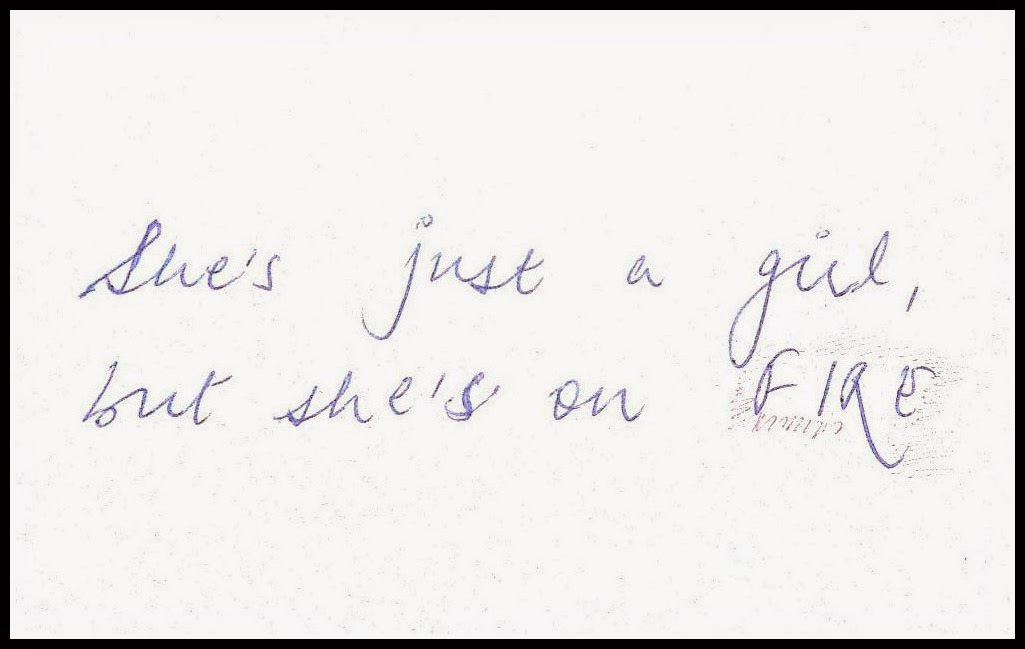 She's just a girl,
but she's on FIRE